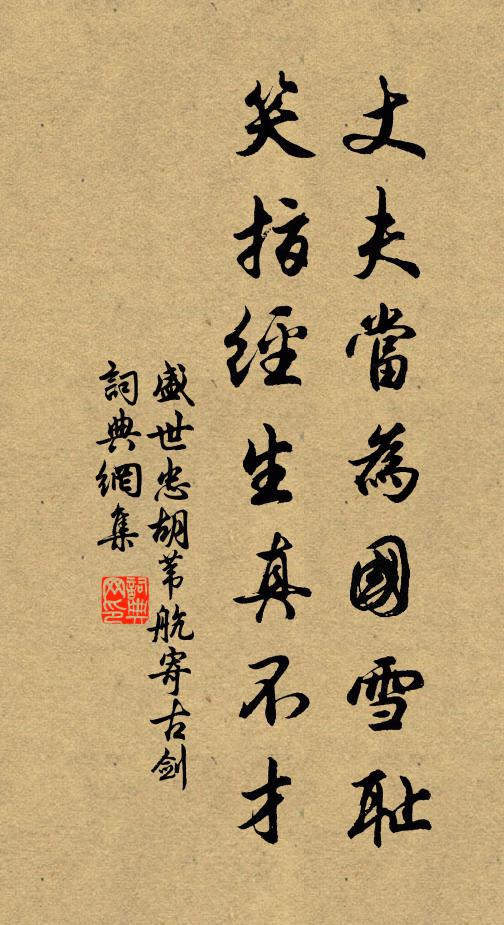 丈夫當為國雪耻
笑指經生真不才
盛世忠胡苇航寄古劍
詞典網集
詞典网印